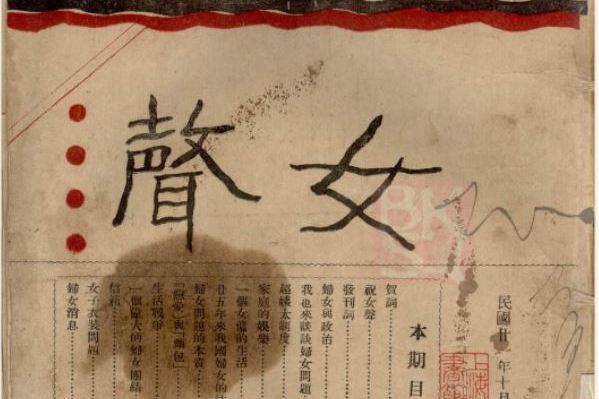 女聲
民國廿一年十月
本期目
賀詞
祝女聲
發刊詞
婦女與政治
我也來談談婦女問題
太制度
家庭的娛樂
一個女傭的生活
廿五年來我國婦女的
婦女問題的本質
「戀愛」與「麵包」
生活戰爭
一個偉大的婦女團結
信箱
女子衣裝問題
婦女消息
上海
書
BK